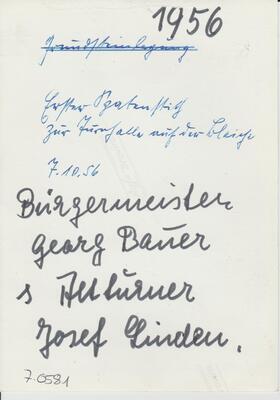 1956
Grundsteinlegung
Erster Spatenstich
zur Turnhalle auf der Bleiche
7.10.56
Bürgermeister
Georg Bauer
s Altturner
Josef Linden.
7.0581